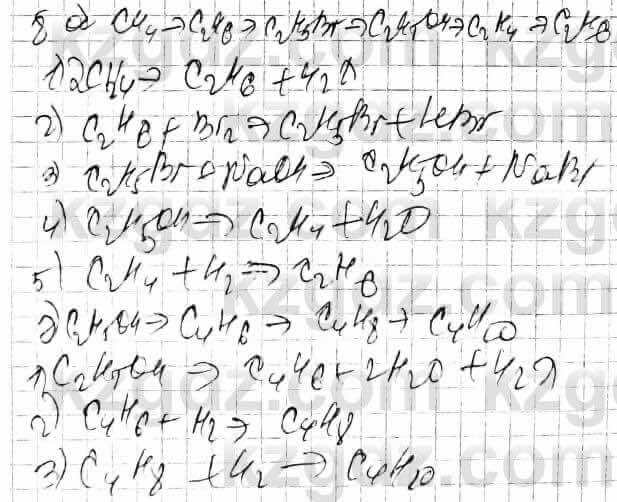 8 а) CH4→C2H6→C2H5Br→C2H5OH→C2H4→C2H6
1) 2CH4→ C2H6 + H2↑
2) C2H6 + Br2→C2H5Br + HBr
3) C2H5Br + NaOH→ C2H5OH + NaBr
4) C2H5OH→ C2H4 + H2O
5) C2H4 + H2→ C2H6
C2H5OH→ C4H6→ C4H8→ C4H10
1) C2H5OH → C4H6 + 2H2O + H2↑
2) C4H6 + H2→ C4H8
3) C4H8 + H2→ C4H10
kzgdz.com